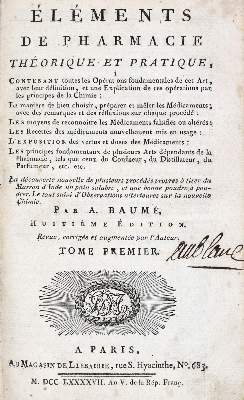 ÉLÉMENTS
DE PHARMACIE
THÉORIQUE ET PRATIQUE,
CONTENANT toutes les Opérations fondamentales de cet Art,
avec leur définition, et une Explication de ces opérations par
les principes de la Chimie :
La maniere de bien choisir, préparer et mêler les Médicaments,
avec des remarques et des réflexions sur chaque procédé :
LES moyens de reconnoître les Médicaments falsifiés ou altérés :
LES Recettes des médicaments nouvellement mis en usage :
L'EXPOSITION des vertus et doses des Médicaments :
LES principes fondamentaux de plusieurs Arts dépendants de la
Pharmacie, tels que ceux du Confiseur, du Distillateur, du
Parfumeur, etc. etc.
La découverte nouvelle de plusieurs procédés propres à tirer du
Marron d'Inde un pain salubre, et une bonne poudre à pou-
drer. Le tout suivi d'Observations ulterieures sur la nouvelle
Chimie.
PAR A. BAUMÉ,
HUITIÈME ÉDITION.
Revue, corrigée et augmentée par l'Auteur.
TOME PREMIER.
A PARIS,
AU MAGASIN DE LIBRAIRIE, rue S. Hyacinthe, No. 683.
M. DCC LXXXXVII. Au V. de la Rép. Franç.